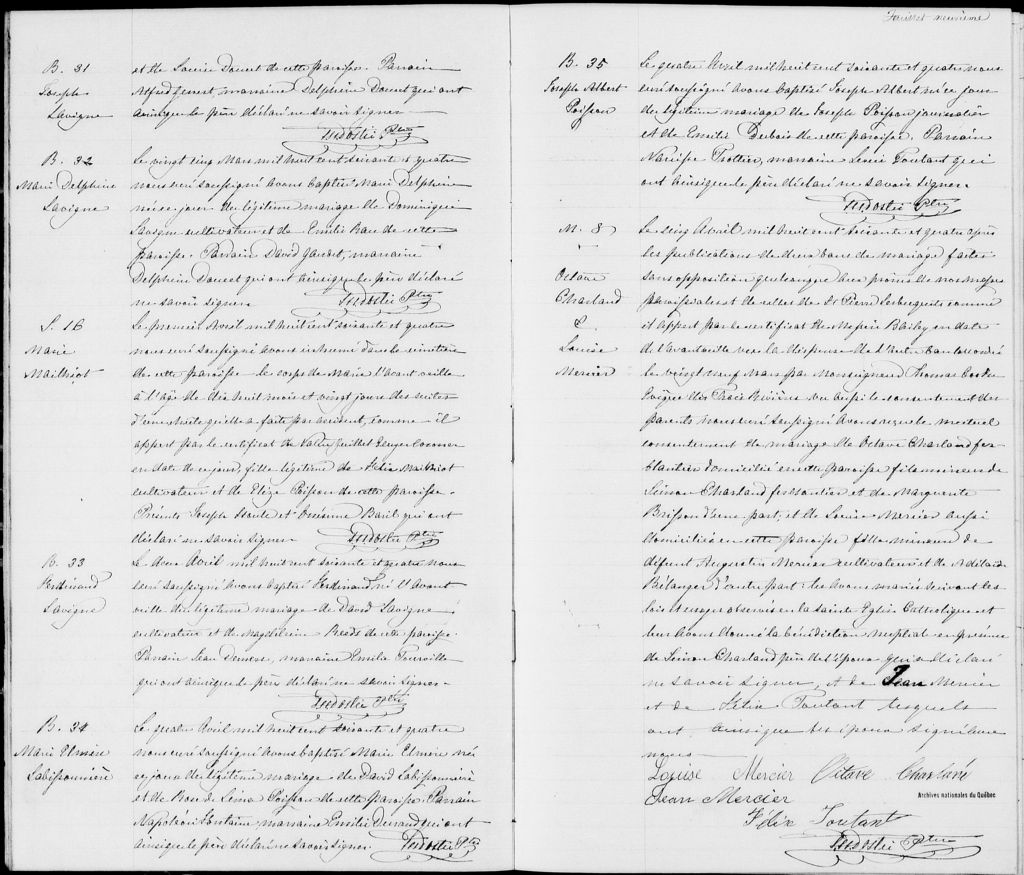 B. 31
Joseph
Lavigne
et de Louise Doucet de cette paroisse. Parrain
Alfred Genest, marraine Delphine Doucet qui ont
ainsique le père déclaré ne savoir signer.
Ptre
B. 32
Marie Delphine
Lavigne
Le vingt cinq Mars mil huit cent soixante et quatre
nous curé soussigné avons baptisé Marie Delphine
née ce jour du légitime mariage de Dominique
Lavigne cultivateur et de Emilie Rau de cette
paroisse. Parrain David Gaudet, marraine
Delphine Doucet qui ont ainsique le père déclaré
ne savoir signer.
Ptre
S. 16
Marie
Mailhiot
Le premier Avril mil huit cent soixante et quatre
nous curé soussigné avons inhumé dans le cimetière
de cette paroisse le corps de Marie l'avant veille
à l'âge de dix huit mois et vingt jours des suites
d'une chute qu'elle a faite par accident, comme il
appert par le certificat de Valère Guillet Ecuyer Coroner
en date de ce jour, fille légitime de Félix Mailhiot
cultivateur et de Eliza Poisson de cette paroisse.
Présents Joseph Houle et Onésime Baril qui ont
déclaré ne savoir signer.
Ptre
B. 33
Ferdinand
Lavigne
Le deux Avril mil huit cent soixante et quatre nous
curé soussigné avons baptisé Ferdinand né l'avant
veille du légitime mariage de David Lavigne
cultivateur et de Magdeleine Beads de cette paroisse.
Parrain Jean Demers, marraine Emilie Tourville
qui ont ainsique le père déclaré ne savoir signer.
Ptre
B. 34
Marie Elmire
Labissonnière
Le quatre Avril mil huit cent soixante et quatre
nous curé soussigné avons baptisé Marie Elmire née
ce jour du légitime mariage de David Labissonnière
et de Rose de Lima Poisson de cette paroisse. Parrain
Napoléon Fontaine, marraine Emilie Durand qui ont
ainsique le père déclaré ne savoir signer.
Ptre
Feuillet neuvième
B. 35
Joseph Albert
Poisson
Le quatre Avril mil huit cent soixante et quatre nous
curé soussigné avons baptisé Joseph Albert né ce jour
du légitime mariage de Joseph Poisson journalier
et de Emilie Dubois de cette paroisse. Parrain
Narcisse Trottier, marraine Toutant qui
ont ainsique le père déclaré ne savoir signer.
Ptre
M. 8
Octave
Charland
&
Louise
Mercier
Le cinq Avril mil huit cent soixante et quatre après
les publications de deux bans de mariage faites
sans opposition quelconque aux prônes de nos messes
paroissiales et de celles de St Pierre Les Becquets comme
il appert par le certificat de Messire Bailey en date
de l'avant veille vu la dispense de l'autre ban accordée
le vingt neuf Mars par Monseigneur Thomas Cooke
Evêque des Trois Rivières vu aussi le consentement des
parents nous curé soussigné avons reçu le mutuel
consentement de mariage de Octave Charland fer-
blantier domicilié en cette paroisse fils mineur de
Simon Charland ferblantier et de Marguerite
Brisson d'une part; et de Louise Mercier aussi
domiciliée en cette paroisse fille mineure de
défunt Augustin Mercier cultivateur et de Adélaïde
Bélanger d'autre part; les avons mariés suivant les
lois et usages observés en la Sainte Eglise Catholique et
leur avons donné la bénédiction nuptiale en présence
de Simon Charland père de l'époux qui a déclaré
ne savoir signer, et de Jean Mercier
et de Félix Toutant lesquels
ont ainsique les époux signé avec
nous
Louise Mercier Octave Charland
Jean Mercier
Archives nationales du Québec
Félix Toutant
Ptre